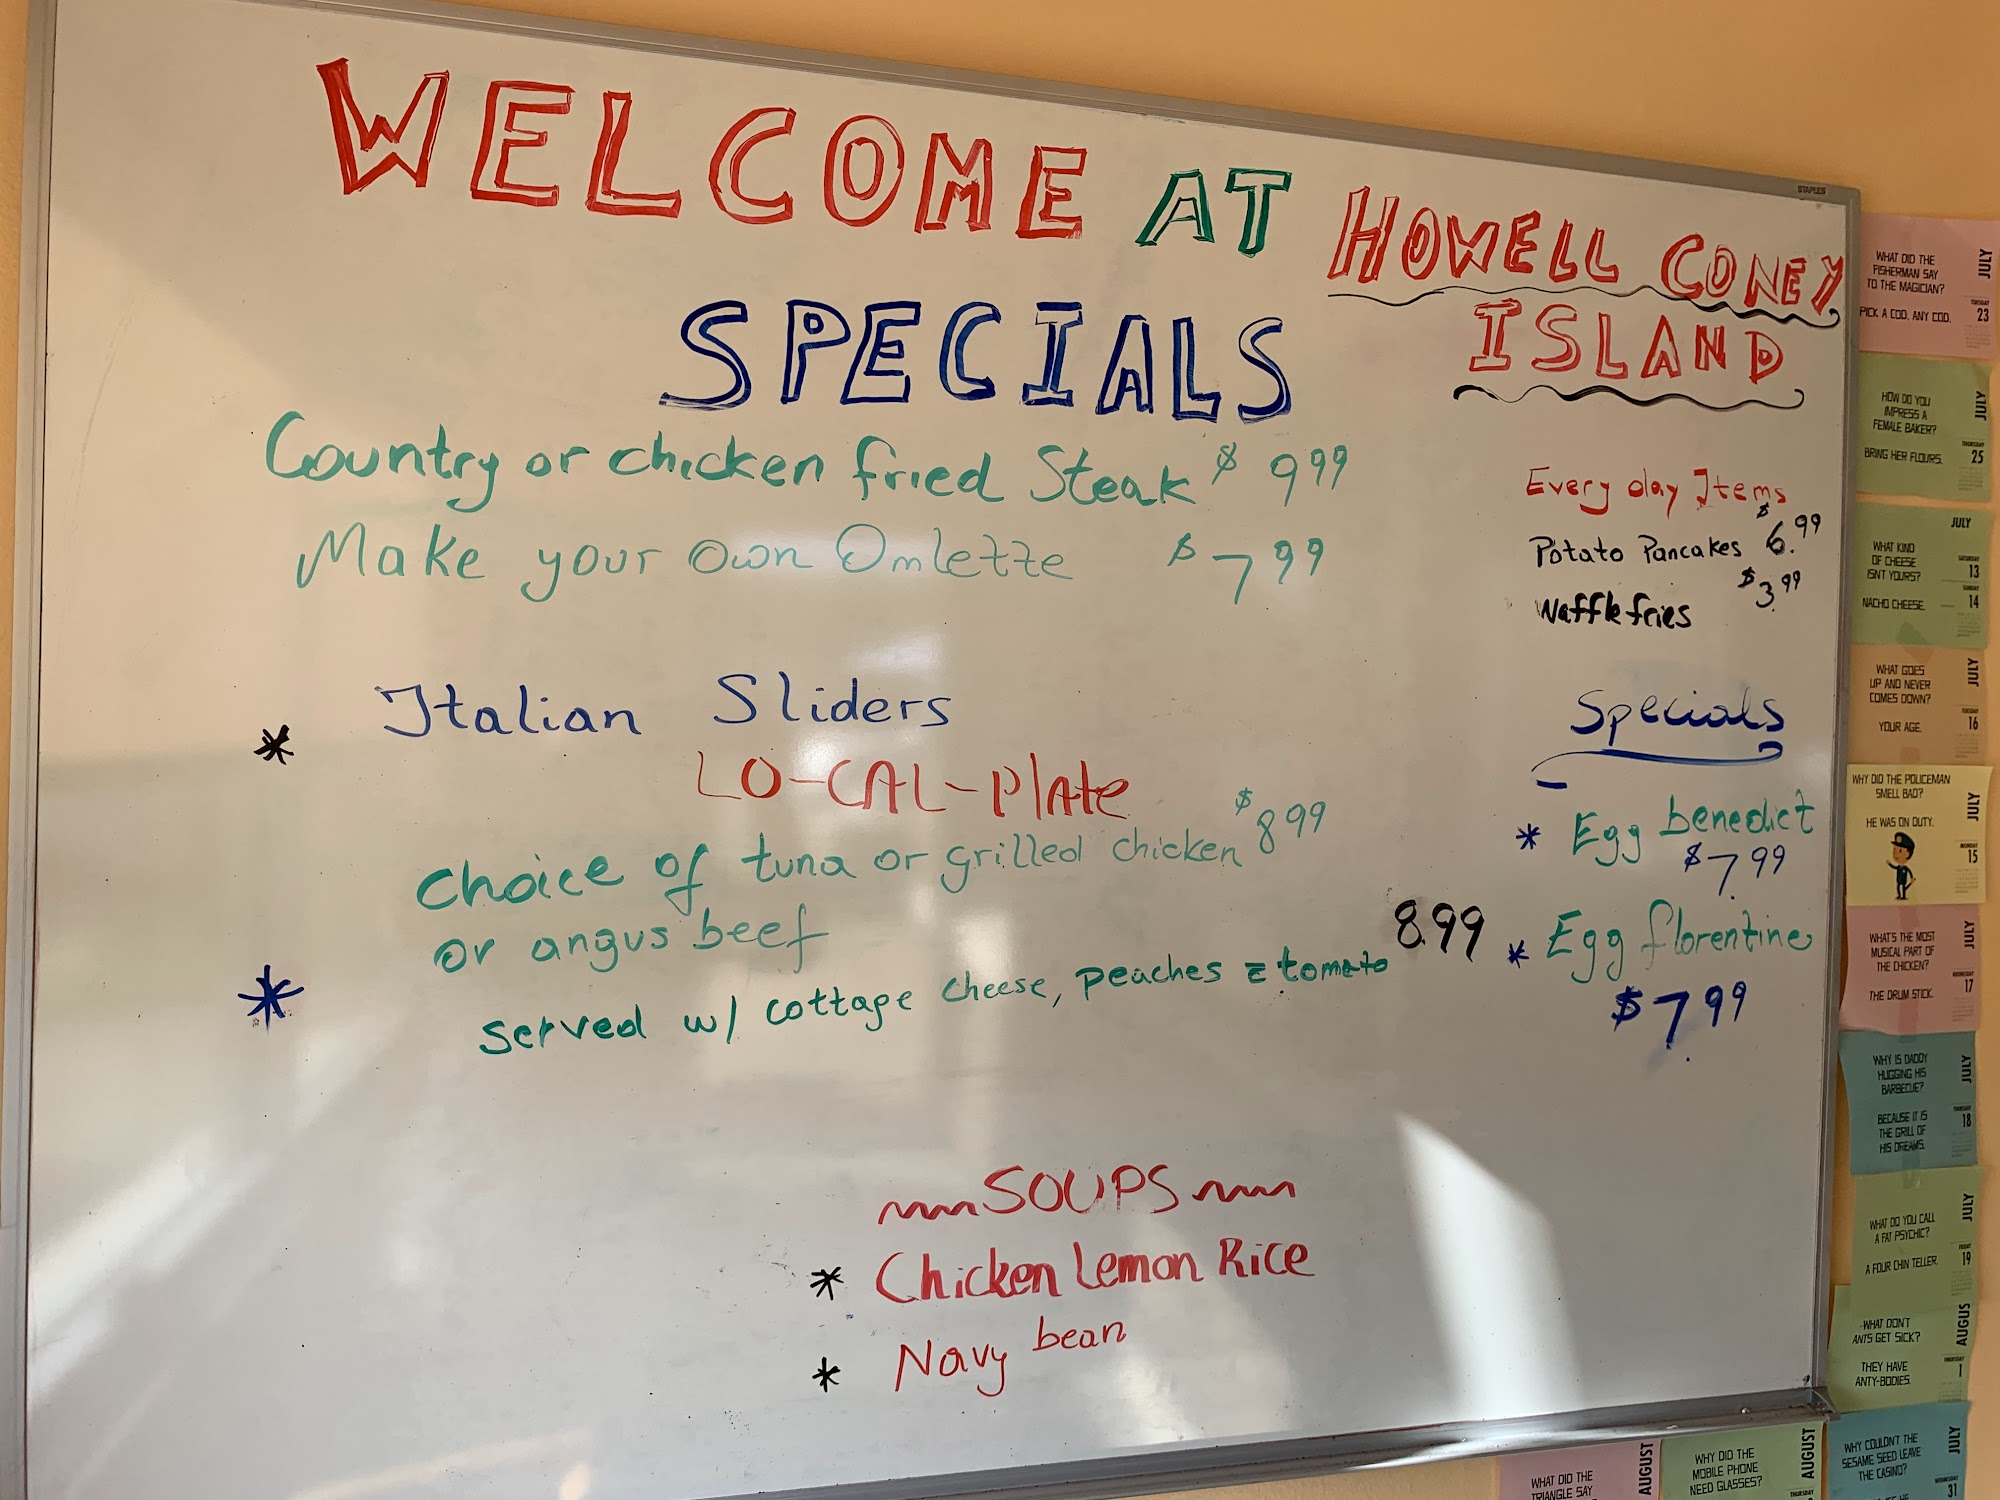 WELCOME AT HOWELL CONEY
ISLAND
SPECIALS
Country or chicken fried Steak $ 9 99
Make your Own Omlette $ 7 99
* Italian Sliders
LO-CAL-Plate
choice of tuna or grilled chicken $ 8 99
or angus beef
* served w/ cottage cheese, peaches = tomato 8.99
~~~SOUPS~~~
* Chicken Lemon Rice
* Navy bean
Every day Items
Potato Pancakes $ 6.99
Waffle fries $ 3.99
Specials
* Egg benedict
$ 7.99
* Egg florentine
$ 7.99
STAPLES
WHAT DID THE
FISHERMAN SAY
TO THE MAGICIAN?
PICK A COD, ANY COD.
JULY
TUESDAY
23
HOW DO YOU
IMPRESS A
FEMALE BAKER?
BRING HER FLOURS.
JULY
THURSDAY
25
JULY
WHAT KIND
OF CHEESE
ISN'T YOURS?
NACHO CHEESE.
SATURDAY
13
SUNDAY
14
WHAT GOES
UP AND NEVER
COMES DOWN?
YOUR AGE.
JULY
TUESDAY
16
WHY DID THE POLICEMAN
SMELL BAD?
HE WAS ON DUTY.
JULY
MONDAY
15
WHAT'S THE MOST
MUSICAL PART OF
THE CHICKEN?
THE DRUM STICK.
JULY
WEDNESDAY
17
WHY IS DADDY
HUGGING HIS
BARBECUE?
BECAUSE IT IS
THE GRILL OF
HIS DREAMS.
JULY
THURSDAY
18
WHAT DO YOU CALL
A FAT PSYCHIC?
A FOUR CHIN TELLER.
JULY
FRIDAY
19
WHAT DON'T
ANTS GET SICK?
THEY HAVE
ANTY-BODIES.
AUGUS
THURSDAY
1
WHY COULDN'T THE
SESAME SEED LEAVE
THE CASINO?
JULY
WEDNESDAY
31
WHY DID THE
MOBILE PHONE
NEED GLASSES?
AUGUST
THURSDAY
WHAT DID THE
TRIANGLE SAY
AUGUST